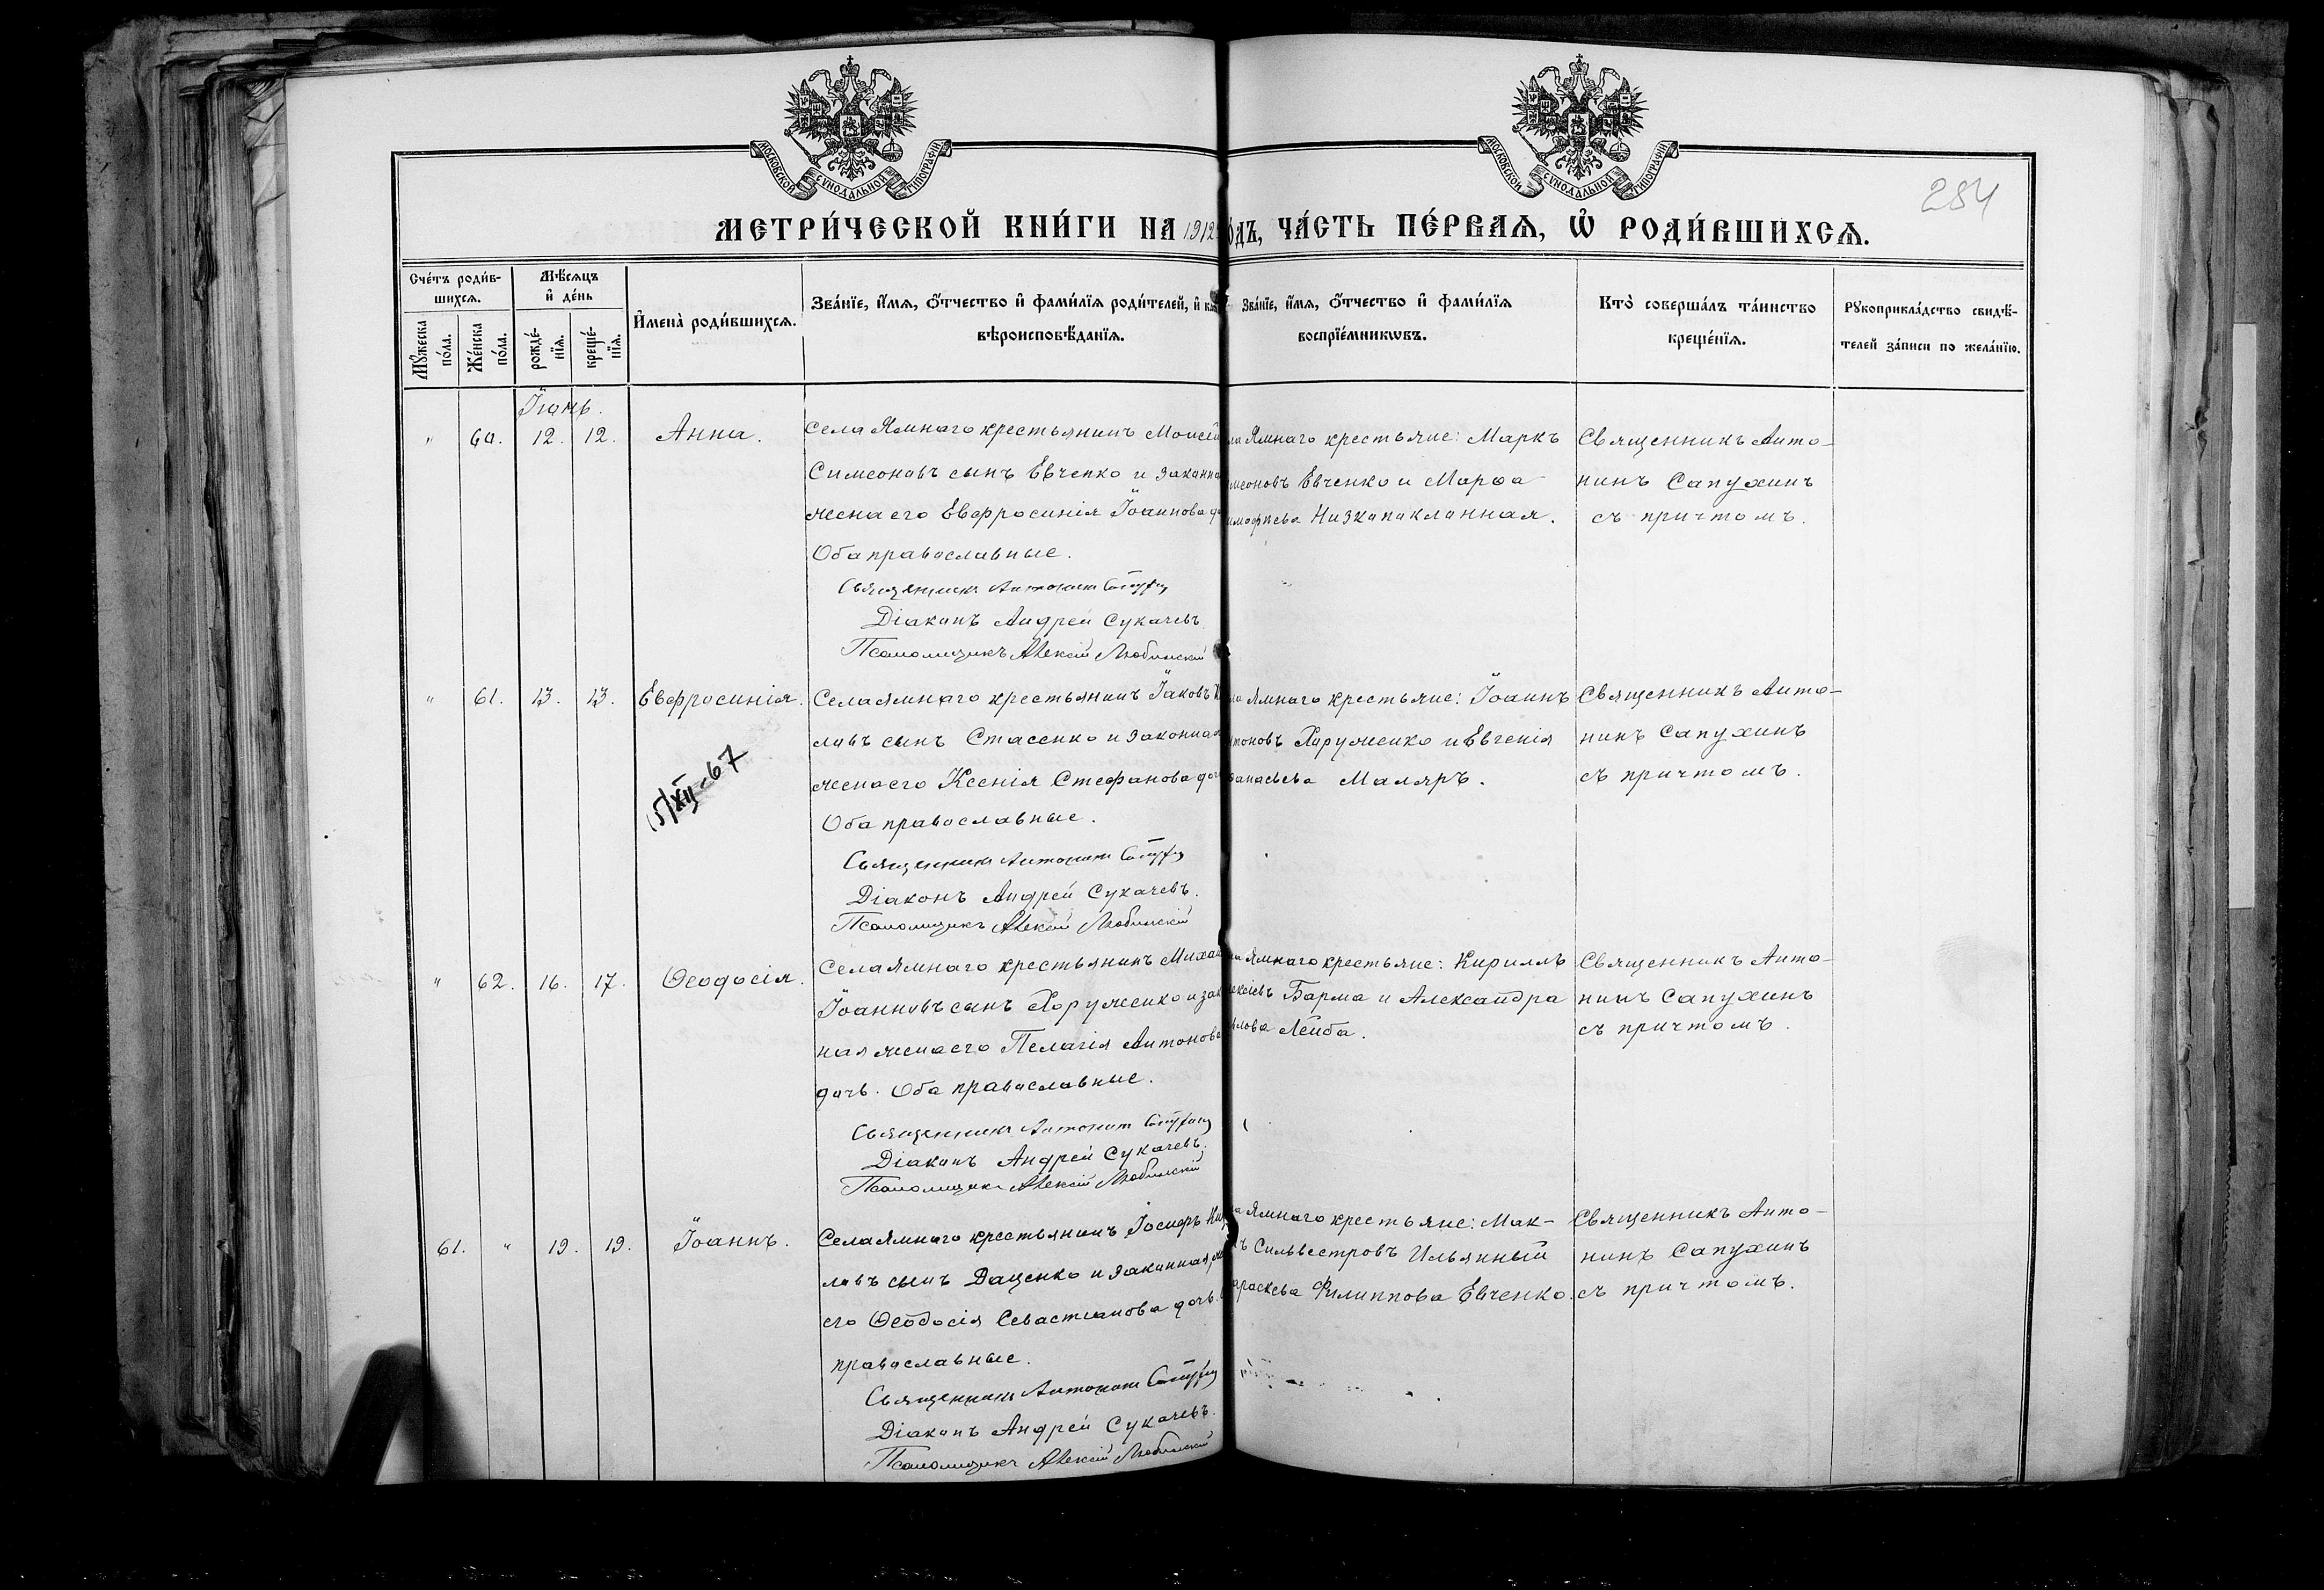 МОСКОВСКОЙ СУНОДАЛЬНОЙ ТИПОГРАФІИ
МОСКОВСКОЙ СУНОДАЛЬНОЙ ТИПОГРАФІИ
284
МЕТРИ́ЧЕСКОЙ КНИ́ГИ НА 1912 ГО́ДЪ, ЧА́СТЬ ПЕ́РВАѦ, Ѡ҆ РОДИ́ВШИХСѦ.
Сче́тъ роди́в-
шихсѧ.
Мꙋ́жеска по́ла.
Же́нска по́ла.
Мѣ́сѧцъ
и҆ де́нь
рожде́-
нїѧ.
креще́-
нїѧ.
И҆мена̀ роди́вшихсѧ.
Зва́нїе, и҆́мѧ, ѻ҆́тчество и҆ фами́лїѧ роди́телей, и҆
вѣроисповѣ́данїѧ.
Зва́нїе, и҆́мѧ, ѻ҆́тчество и҆ фами́лїѧ
воспрїе́мникѡвъ.
Кто̀ соверша́лъ та́инство
креще́нїѧ.
Рꙋкоприкла́дство свидѣ́-
телей за́писи по жела́нїю.
Іюнь.
" 60. 12. 12. Анна.
Села Ямнаго крестьянинъ Моисей
Симеоновъ сынъ Евченко и законная
жена его Евфросинія Іоаннова
Оба православные.
Священникъ Антонинъ Сапухинъ
Діаконъ Андрей Сукачевъ
Псаломщикъ Алексій Любинскій
Ямнаго крестьяне: Маркъ
Евченко и Марѳа
Низкопоклонная.
Священникъ Анто-
нинъ Сапухинъ
съ причтомъ.
" 61. 13. 13. Евфросинія.
15/XII-67
Села Ямнаго крестьянинъ Іаковъ
ловъ сынъ Стасенко и законная
жена его Ксенія Стефанова
Оба православные.
Священникъ Антонинъ Сапухинъ
Діаконъ Андрей Сукачевъ.
Псаломщикъ Алексій Любинскій
Ямнаго крестьяне: Іоаннъ
Хоруженко и Евгенія
Маляръ.
Священникъ Анто-
нинъ Сапухинъ
съ причтомъ.
" 62. 16. 17. Ѳеодосія.
Села Ямнаго крестьянинъ Михаилъ
Іоанновъ сынъ Хоруженко и
ная жена его Пелагія Антонова
дочь. Оба православные.
Священникъ Антонинъ Сапухинъ
Діаконъ Андрей Сукачевъ.
Псаломщикъ Алексій Любинскій
Ямнаго крестьяне: Кириллъ
Барма и Александра
Леиба.
Священникъ Анто-
нинъ Сапухинъ
съ причтомъ.
61. " 19. 19. Іоаннъ.
Села Ямнаго крестьянинъ Іосифъ
ловъ сынъ Даценко и законная
его Ѳеодосія Севастіанова дочь.
православные.
Священникъ Антонинъ Сапухинъ
Діаконъ Андрей Сукачевъ.
Псаломщикъ Алексій Любинскій
Ямнаго крестьяне: Мак-
Сильвестровъ Ильяный
Филиппова Евченко.
Священникъ Анто-
нинъ Сапухинъ
съ причтомъ.